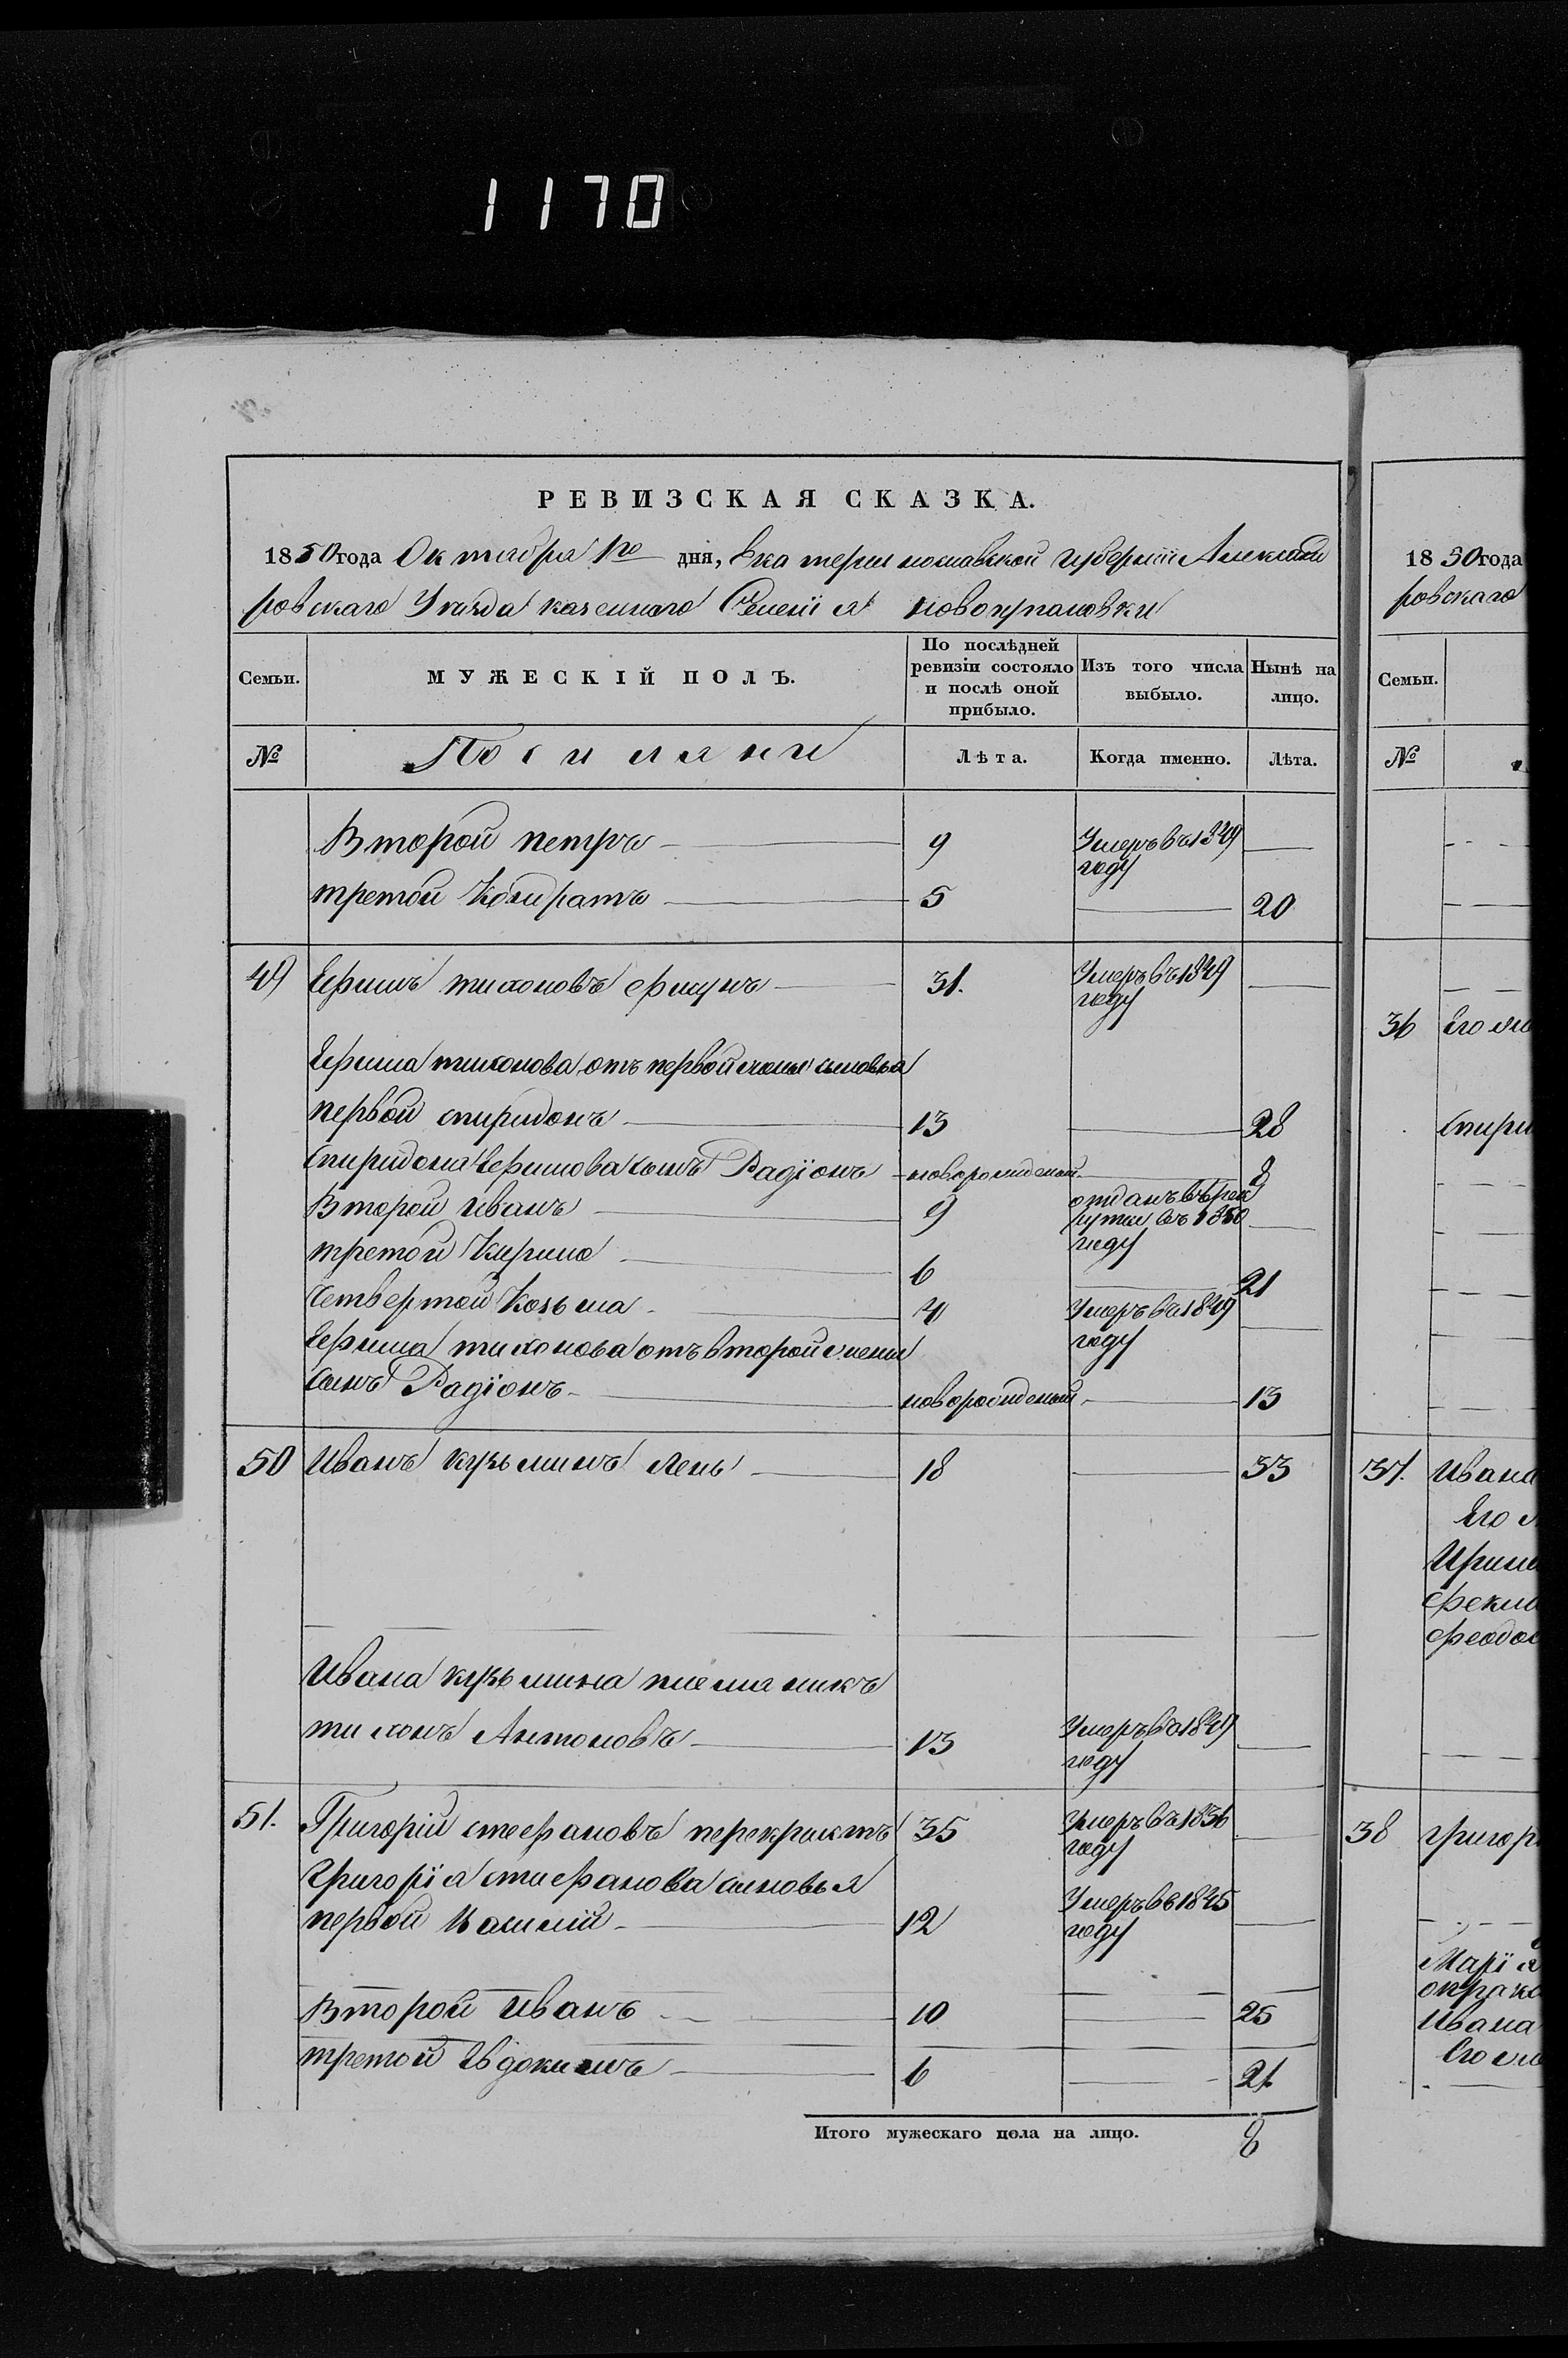 1170
РЕВИЗСКАЯ СКАЗКА.
1850 года Октября 1го дня, Екатеринославской губерніи Александ
ровскаго Уѣзда казеннаго Селенія
Семьи.
МУЖЕСКІЙ ПОЛЪ.
По послѣдней ревизіи состояло и послѣ оной прибыло.
Изъ того числа выбыло.
Нынѣ на лицо.
№
Посиляни
Лѣта.
Когда именно.
Лѣта.
Второй петръ 9 Умеръ въ 1849 году
третой Кондратъ 5 20
49 Ефимъ тихоновъ 31. Умеръ въ 1849 году
Ефима тихонова отъ первой жены сыновья
первой спиридонъ 13 28
Спиридона Ефимова сынъ Радіонъ новорожденой 8
Второй иванъ 9 отданъ въ рек
руты въ 1850
году
третой Кирило 6 21
Четвертой Козьма 4 Умеръ въ 1849 году
Ефима тихонова отъ второй жены
сынъ Радіонъ новорожденой 13
50 Иванъ кузьминъ лень 18 33
Ивана кузьмина племяникъ
тихонъ Антоновъ 13 Умеръ въ 1849 году
51. Григорій стефановъ 35 Умеръ въ 1836 году
Григорія стефанова сыновья
первой Василій 12 Умеръ въ 1845 году
Второй Иванъ 10 25
третой Евдокимъ 6 21
Итого мужескаго пола на лицо. 8
1850 года
ровскаго
Семьи.
№
36 Его
Спири
37. Ивана
Его
Ирина
Феодос
38 григор
Марія
Ивана
Его